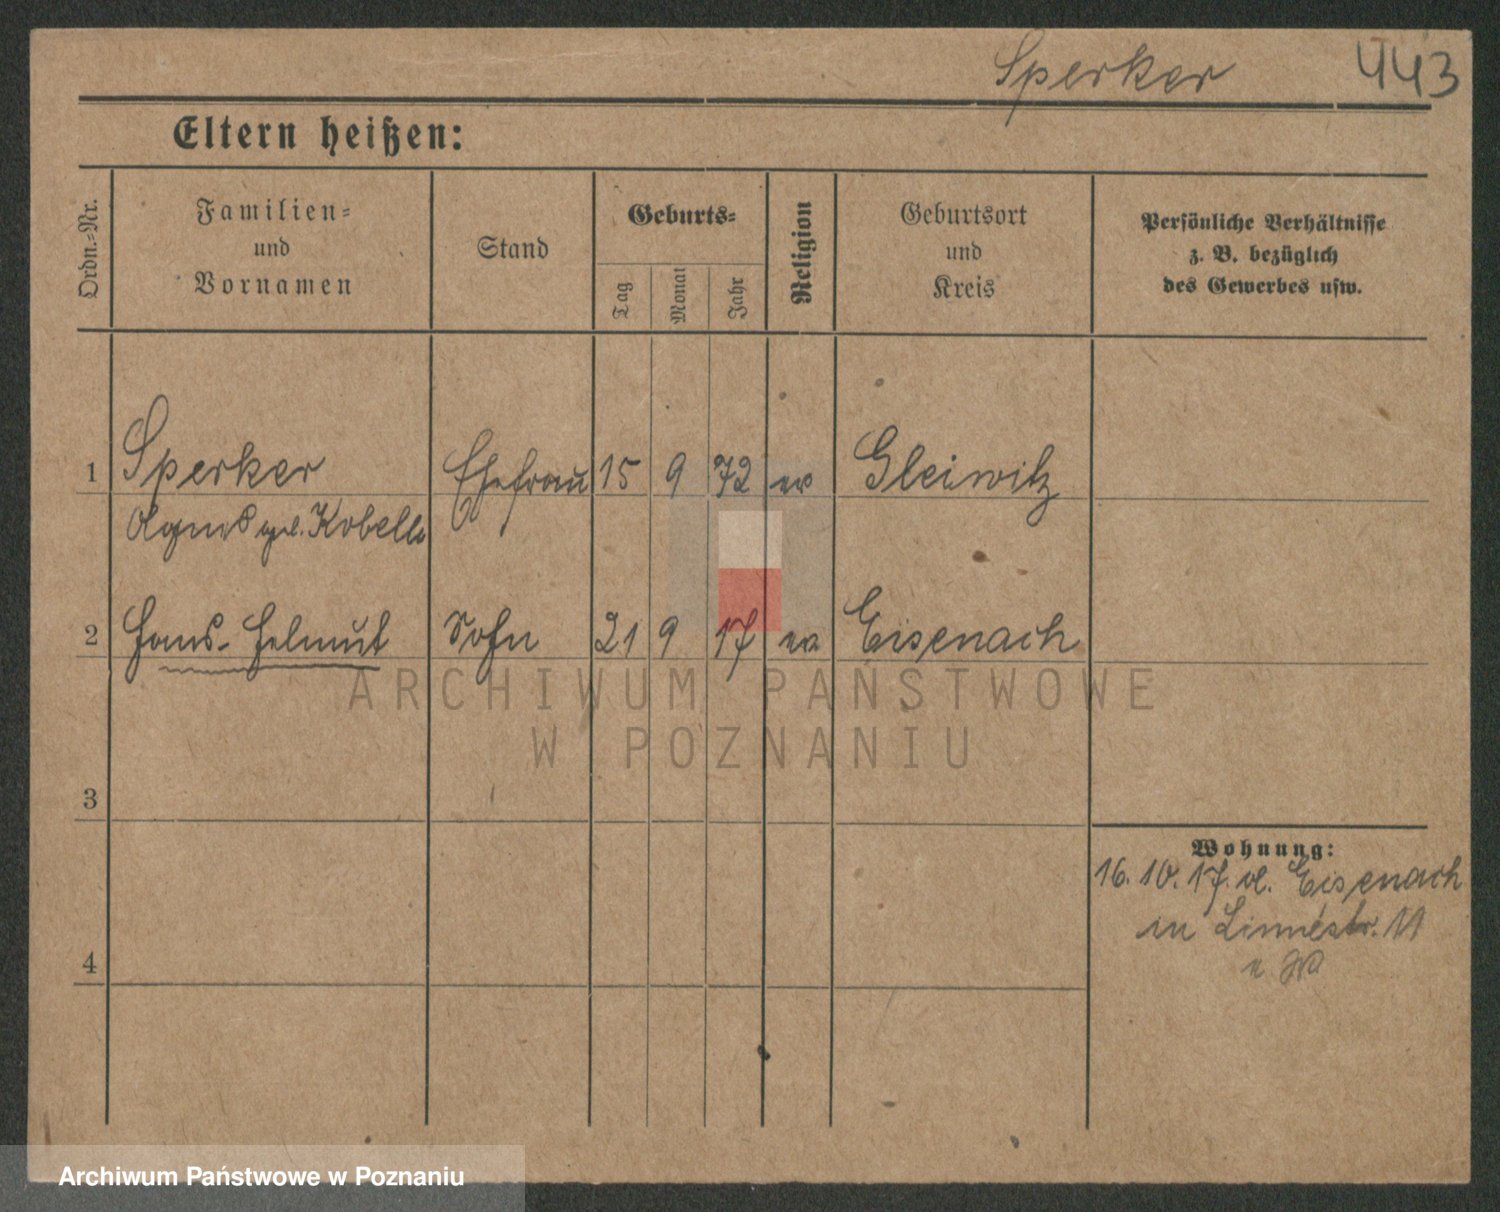 Sperker 443
Eltern heißen:
Ordn.-Nr.
Familien-
und
Vornamen
Stand
Geburts-
Tag
Monat
Jahr
Religion
Geburtsort
und
Kreis
Persönliche Verhältnisse
z. B. bezüglich
des Gewerbes usw.
1 Sperker Ehefrau 15 9 72 ev Gleiwitz
Agnes geb. Kobelt
2 Hans-Helmut Sohn 21 9 17 ev Eisenach
ARCHIWUM PAŃSTWOWE
W POZNANIU
3
Wohnung:
16. 10. 17. Eisenach
in Linnéstr. 11
4
Archiwum Państwowe w Poznaniu